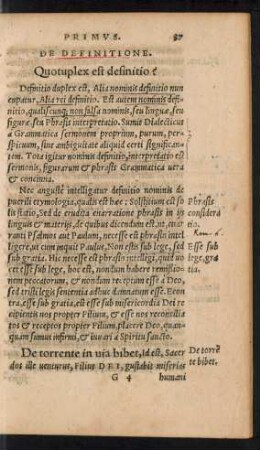 PRIMVS. 87
DE DEFINITIONE.
Quotuplex est definitio?
Definitio duplex est, Alia nominis definitio nun
cupatur, Alia rei definitio. Est autem nominis defi-
nitio, qualiscunq; non falsa nominis, seu linguæ, seu
figuræ, seu Phrasis interpretatio. Sumit Dialectica
a Grammatica sermonem proprium, purum, per-
spicuum, sine ambiguitate aliquid certi significan-
tem. Tota igitur nominis definitio, interpretatio est
sermonis, figurarum & phrasis Grammatica vera
& concinna.
Nec angustè intelligatur definitio nominis de
puerili etymologia, qualis est hæc: Solstitium est so
lis statio, Sed de erudita enarratione phrasis in
linguis & materijs, de quibus dicendum est, ut, e-
narranti Psalmos aut Paulum, necesse est phrasin intel
ligere, ut cum inquit Paulus, Non estis sub lege, sed
sub gratia. Hic necesse est phrasin intelligi, quid uo
cet esse sub lege, hoc est, nondum habere remissio-
nem peccatorum, & nondum receptum esse à Deo,
sed tristi legis sententia adhuc damnatum esse. Econ
tra, esse sub gratia, est esse sub misericordia Dei re
cipientis nos propter Filium, & est esse nos reconcilia
tos & receptos propter Filium, placere Deo, quan-
quam simus infirmi, & iuuari à Spiritu sancto.
Phrasis
considera
tio.
Rom. 6.
Esse sub
lege, gra-
tia.
De torrente in uia bibet, id est, Sacer
dos ille uenturus, Filius DEI, gustabit miserias
De torrē
te bibet.
G 4 humani